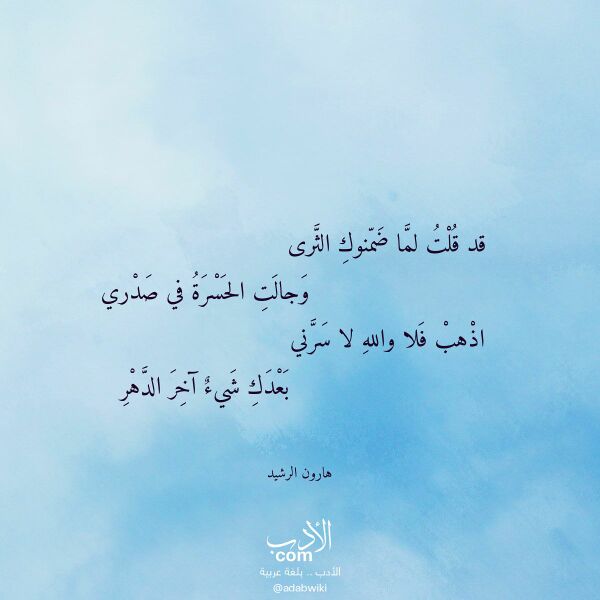 قد قُلْتُ لمَّا ضَمّنوكِ الثَّرى
وَجالَتِ الحَسْرَةُ في صَدْري
اذْهبْ فَلا واللهِ لا سَرَّني
بَعْدَكِ شَيءٌ آخِرَ الدَّهْرِ
هارون الرشيد
الأدب
com
الأدب .. بلغة عربية
@adabwiki